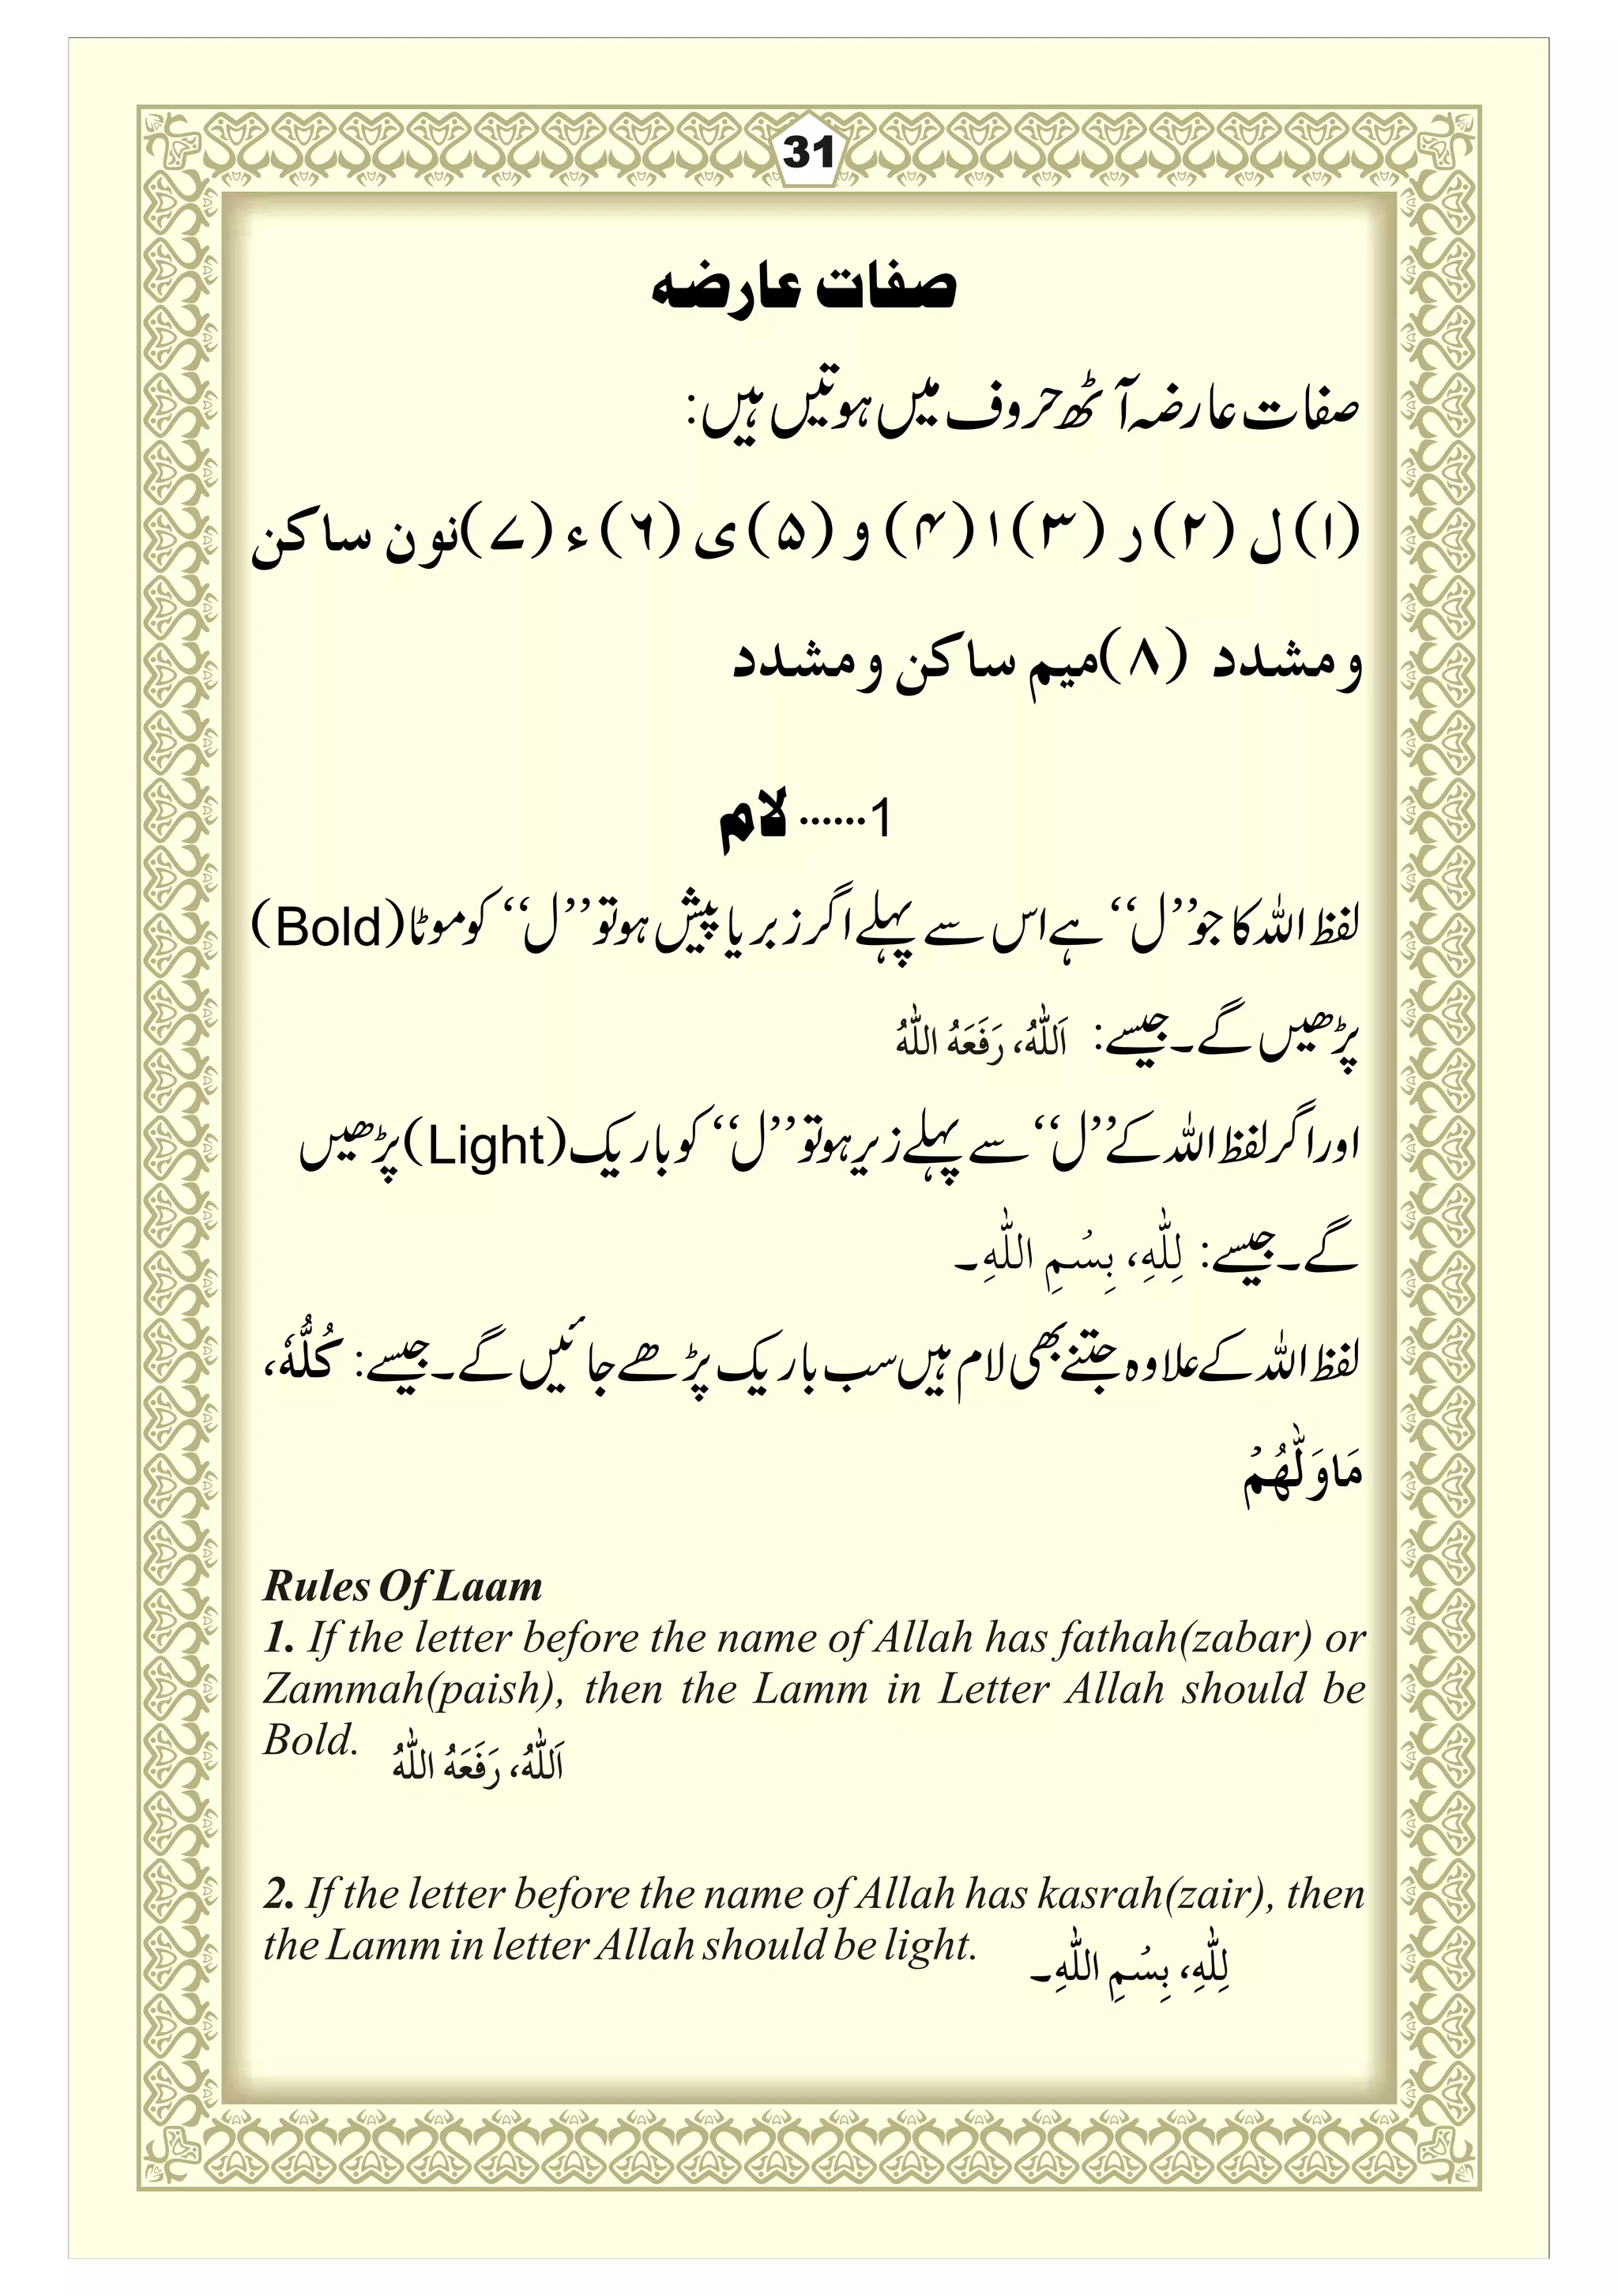 31
صفات عارضہ
صفات عارضہ آٹھ حروف میں ہوتیں ہیں:
(۱) ل (۲) ر (۳) ا (۴) و (۵) ی (٦) ء (۷) نون ساکن
و مشدد (۸) میم ساکن و مشدد
1...... لام
لفظ اللہ کا جو ’’ل‘‘ ہے اس سے پہلے اگر زبر یا پیش ہو تو ’’ل‘‘ کو موٹا (Bold)
پڑھیں گے۔ جیسے: اَللّٰہُ، رَفَعَہُ اللّٰہُ
اور اگر لفظ اللہ کے ’’ل‘‘ سے پہلے زیر ہو تو ’’ل‘‘ کو باریک (Light) پڑھیں
گے۔ جیسے: لِلّٰہِ، بِسْمِ اللّٰہِ۔
لفظ اللہ کے علاوہ جتنے بھی لام ہیں سب باریک پڑھے جائیں گے۔ جیسے: کُلُّہٗ،
مَاوَلّٰہُمْ
Rules Of Laam
1. If the letter before the name of Allah has fathah(zabar) or
Zammah(paish), then the Lamm in Letter Allah should be
Bold. اَللّٰہُ، رَفَعَہُ اللّٰہُ
2. If the letter before the name of Allah has kasrah(zair), then
the Lamm in letter Allah should be light. لِلّٰہِ، بِسْمِ اللّٰہِ۔